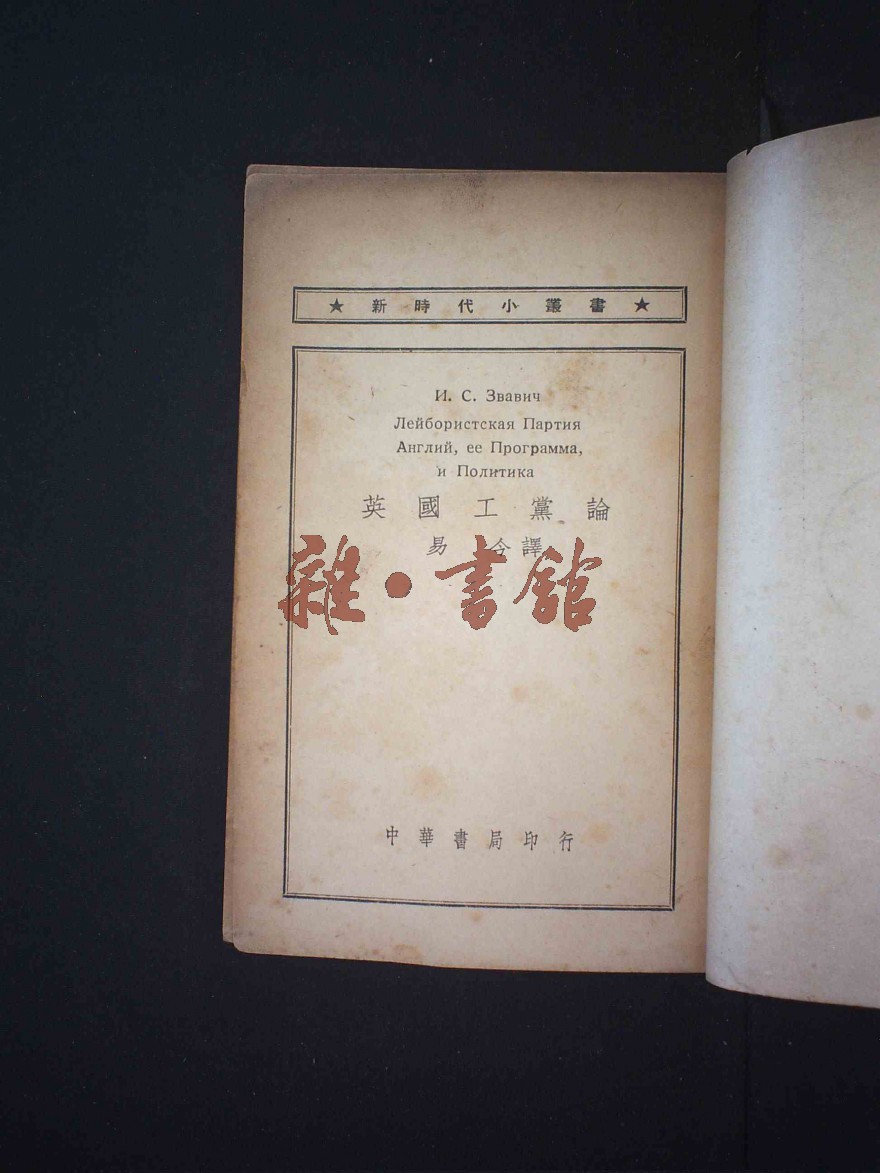 ★ 新時代小叢書 ★
И. С. Звавич
Лейбористская Партия
Англий, ее Программа,
и Политика
英國工黨論
易今譯
雜·書館
中華書局印行